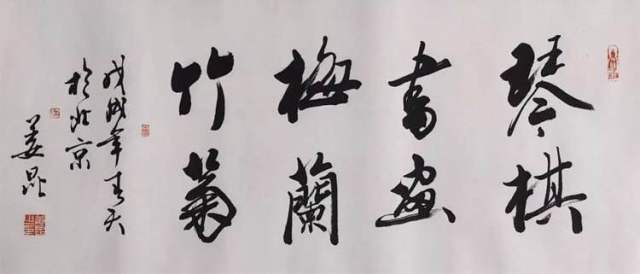 琴棋
書畫
梅蘭
竹菊
戊戌年春天
於北京
姜昆